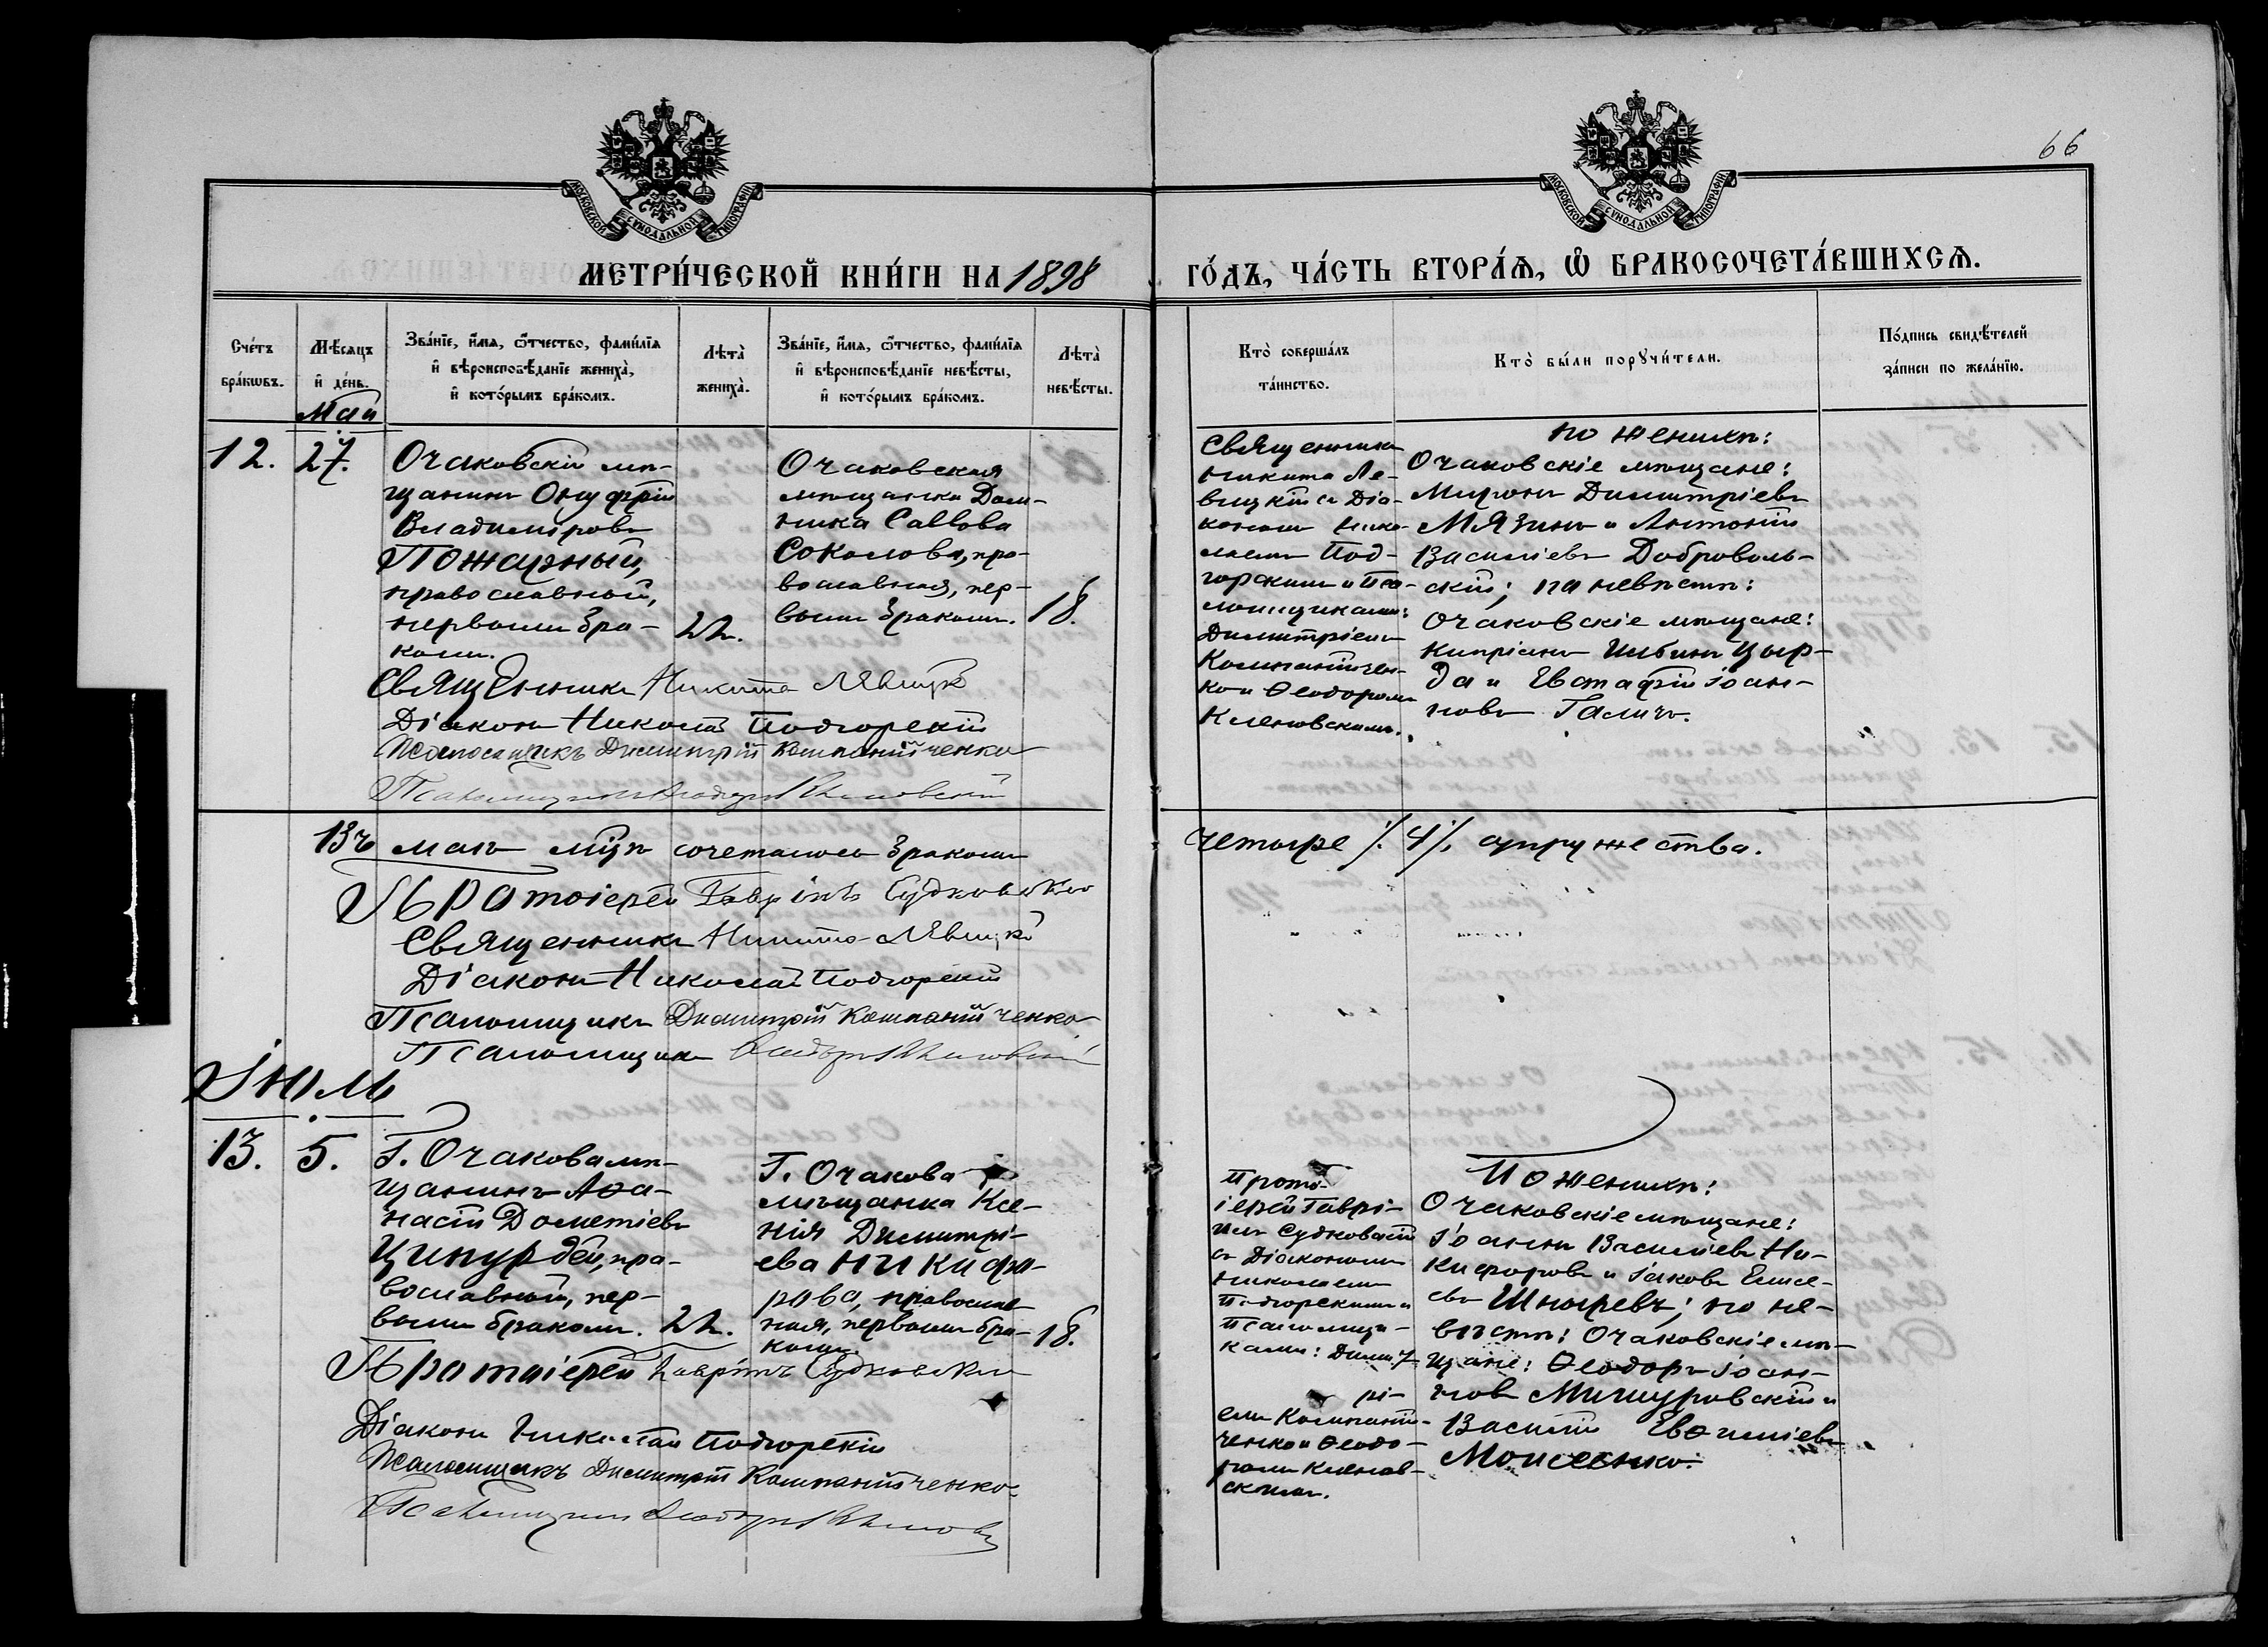 66
МОСКОВСКОЙ СѴНОДАЛЬНОЙ ТИПОГРАФІИ
МОСКОВСКОЙ СѴНОДАЛЬНОЙ ТИПОГРАФІИ
МЕТРИ́ЧЕСКОЙ КНИ́ГИ НА 1898
ГО́ДЪ, ЧА́СТЬ ВТОРА́Ѧ, Ѡ҆ БРАКОСОЧЕТА́ВШИХСѦ.
Сче́тъ
бра́кѡвъ.
Мѣ́сѧцъ
и҆ де́нь.
Зва́нїе, и҆́мѧ, ѻ҆́тчество, фами́лїѧ
и҆ вѣроисповѣ́данїе жениха̀,
и҆ кото́рымъ бра́комъ.
Лѣта̀
жениха̀.
Зва́нїе, и҆́мѧ, ѻ҆́тчество, фами́лїѧ
и҆ вѣроисповѣ́данїе невѣ́сты,
и҆ кото́рымъ бра́комъ.
Лѣта̀
невѣ́сты.
Кто̀ соверша́лъ
та́инство.
Кто̀ бы́ли порꙋчи́тели.
По́дпись свидѣ́телей
за́писи по жела́нїю.
Май
12.
27.
Очаковскій мѣ-
щанинъ Онуфрій
Владиміровъ
Пожарный,
православный,
первымъ бра-
комъ.
22.
Очаковская
мѣщанка Дом-
ника Саввова
Соколова, пра-
вославная, пер-
вымъ бракомъ.
18.
Священникъ
Никита Ле-
вицкій съ Діа-
кономъ Нико-
лаемъ Под-
горскимъ и Пса-
ломщиками:
Димитріемъ
Компанійчен-
ко и Ѳеодоромъ
Кленовскимъ.
По женихѣ:
Очаковскіе мѣщане:
Миронъ Димитріевъ
Мязинъ и Антоній
Василіевъ Доброволь-
скій; по невѣстѣ:
Очаковскіе мѣщане:
Кипріанъ Ильинъ Цыр-
да и Евстафій Іоан-
новъ Галичъ.
Священникъ Никита Левицкій
Діаконъ Николай Подгорскій
Псаломщикъ Димитрій Компанійченко
Псаломщикъ Ѳеодоръ Кленовскій
Въ маѣ м-цѣ сочеталось бракомъ
четыре /:4:/ супружества.
Протоіерей Гавріилъ Судковскій
Священникъ Никита Левицкій
Діаконъ Николай Подгорскій
Псаломщикъ Димитрій Компанійченко
Псаломщикъ Ѳеодоръ Кленовскій
Іюль
13.
5.
Г. Очакова мѣ-
щанинъ Аѳа-
насій Дометіевъ
Ципурдей, пра-
вославный, пер-
вымъ бракомъ.
22.
Г. Очакова
мѣщанка Ксе-
нія Димитрі-
ева Никифо-
рова, православ-
ная, первымъ бра-
комъ.
18.
Прото-
іерей Гаврі-
илъ Судковскій
съ Діакономъ
Николаемъ
Подгорскимъ и
Псаломщи-
ками: Димит-
рі-
емъ Компаній-
ченко и Ѳеодо-
ромъ Кленов-
скимъ.
По женихѣ:
Очаковскіе мѣщане:
Іоаннъ Василіевъ Ни-
кифоровъ и Іаковъ Елисе-
евъ Шныревъ; по не-
вѣстѣ: Очаковскіе мѣ-
щане: Ѳеодоръ Іоан-
новъ Мишуровскій и
Василій Евѳиміевъ
Моисеенко.
Протоіерей Гавріилъ Судковскій
Діаконъ Николай Подгорскій
Псаломщикъ Димитрій Компанійченко
Псаломщикъ Ѳеодоръ Кленовскій